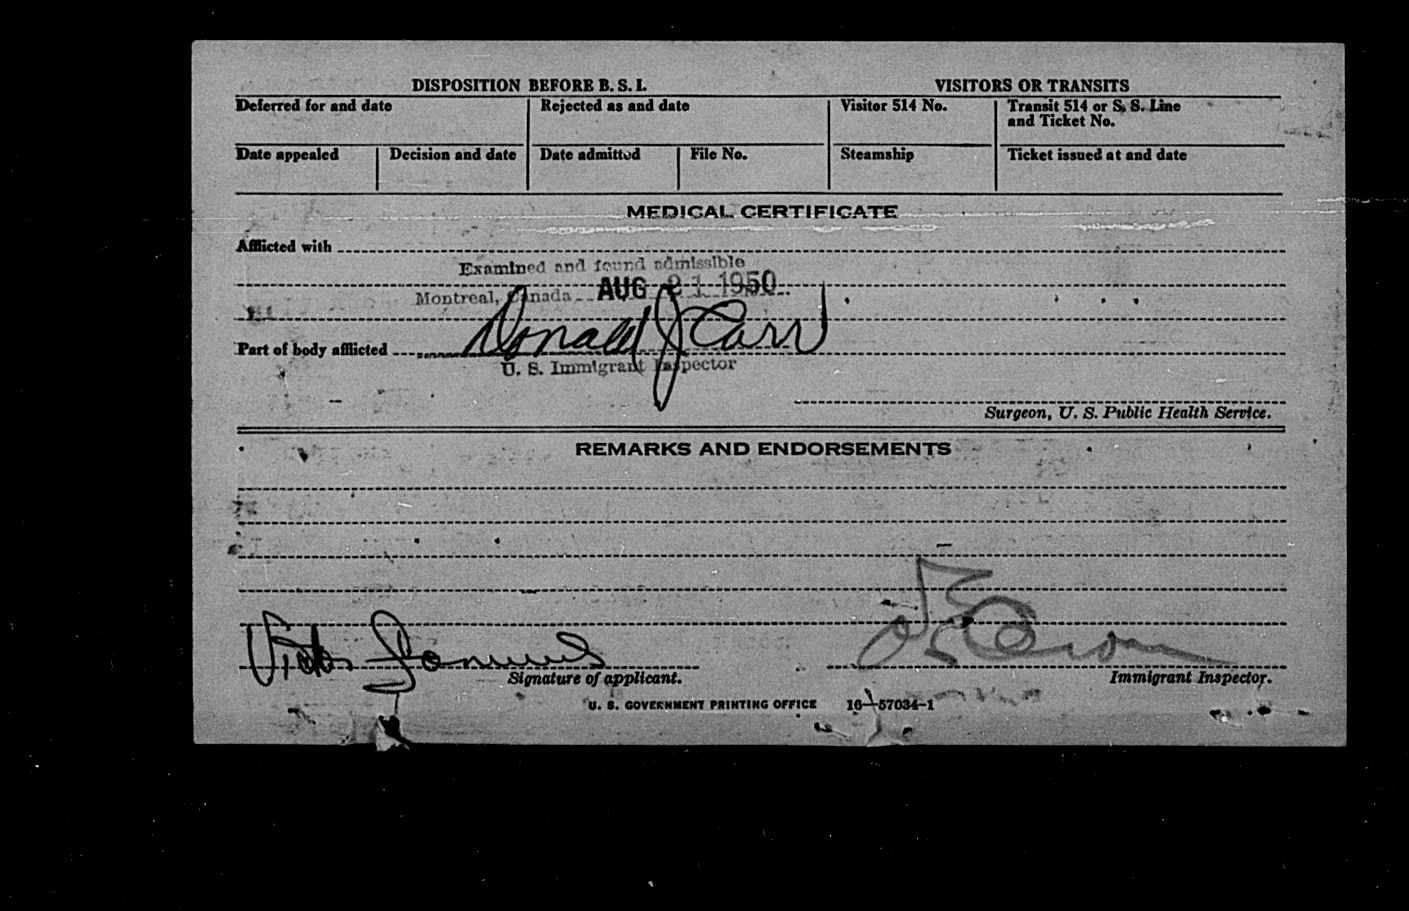 DISPOSITION BEFORE B. S. I.
VISITORS OR TRANSITS
Deferred for and date
Rejected as and date
Visitor 514 No.
Transit 514 or S. S. Line
and Ticket No.
Date appealed
Decision and date
Date admitted
File No.
Steamship
Ticket issued at and date
MEDICAL CERTIFICATE
Afflicted with
Examined and found admissible
Montreal, Canada AUG 21 1950
Donald J Carr
Part of body afflicted
U. S. Immigrant Inspector
Surgeon, U. S. Public Health Service.
REMARKS AND ENDORSEMENTS
Signature of applicant.
Immigrant Inspector.
U. S. GOVERNMENT PRINTING OFFICE 16—57034-1